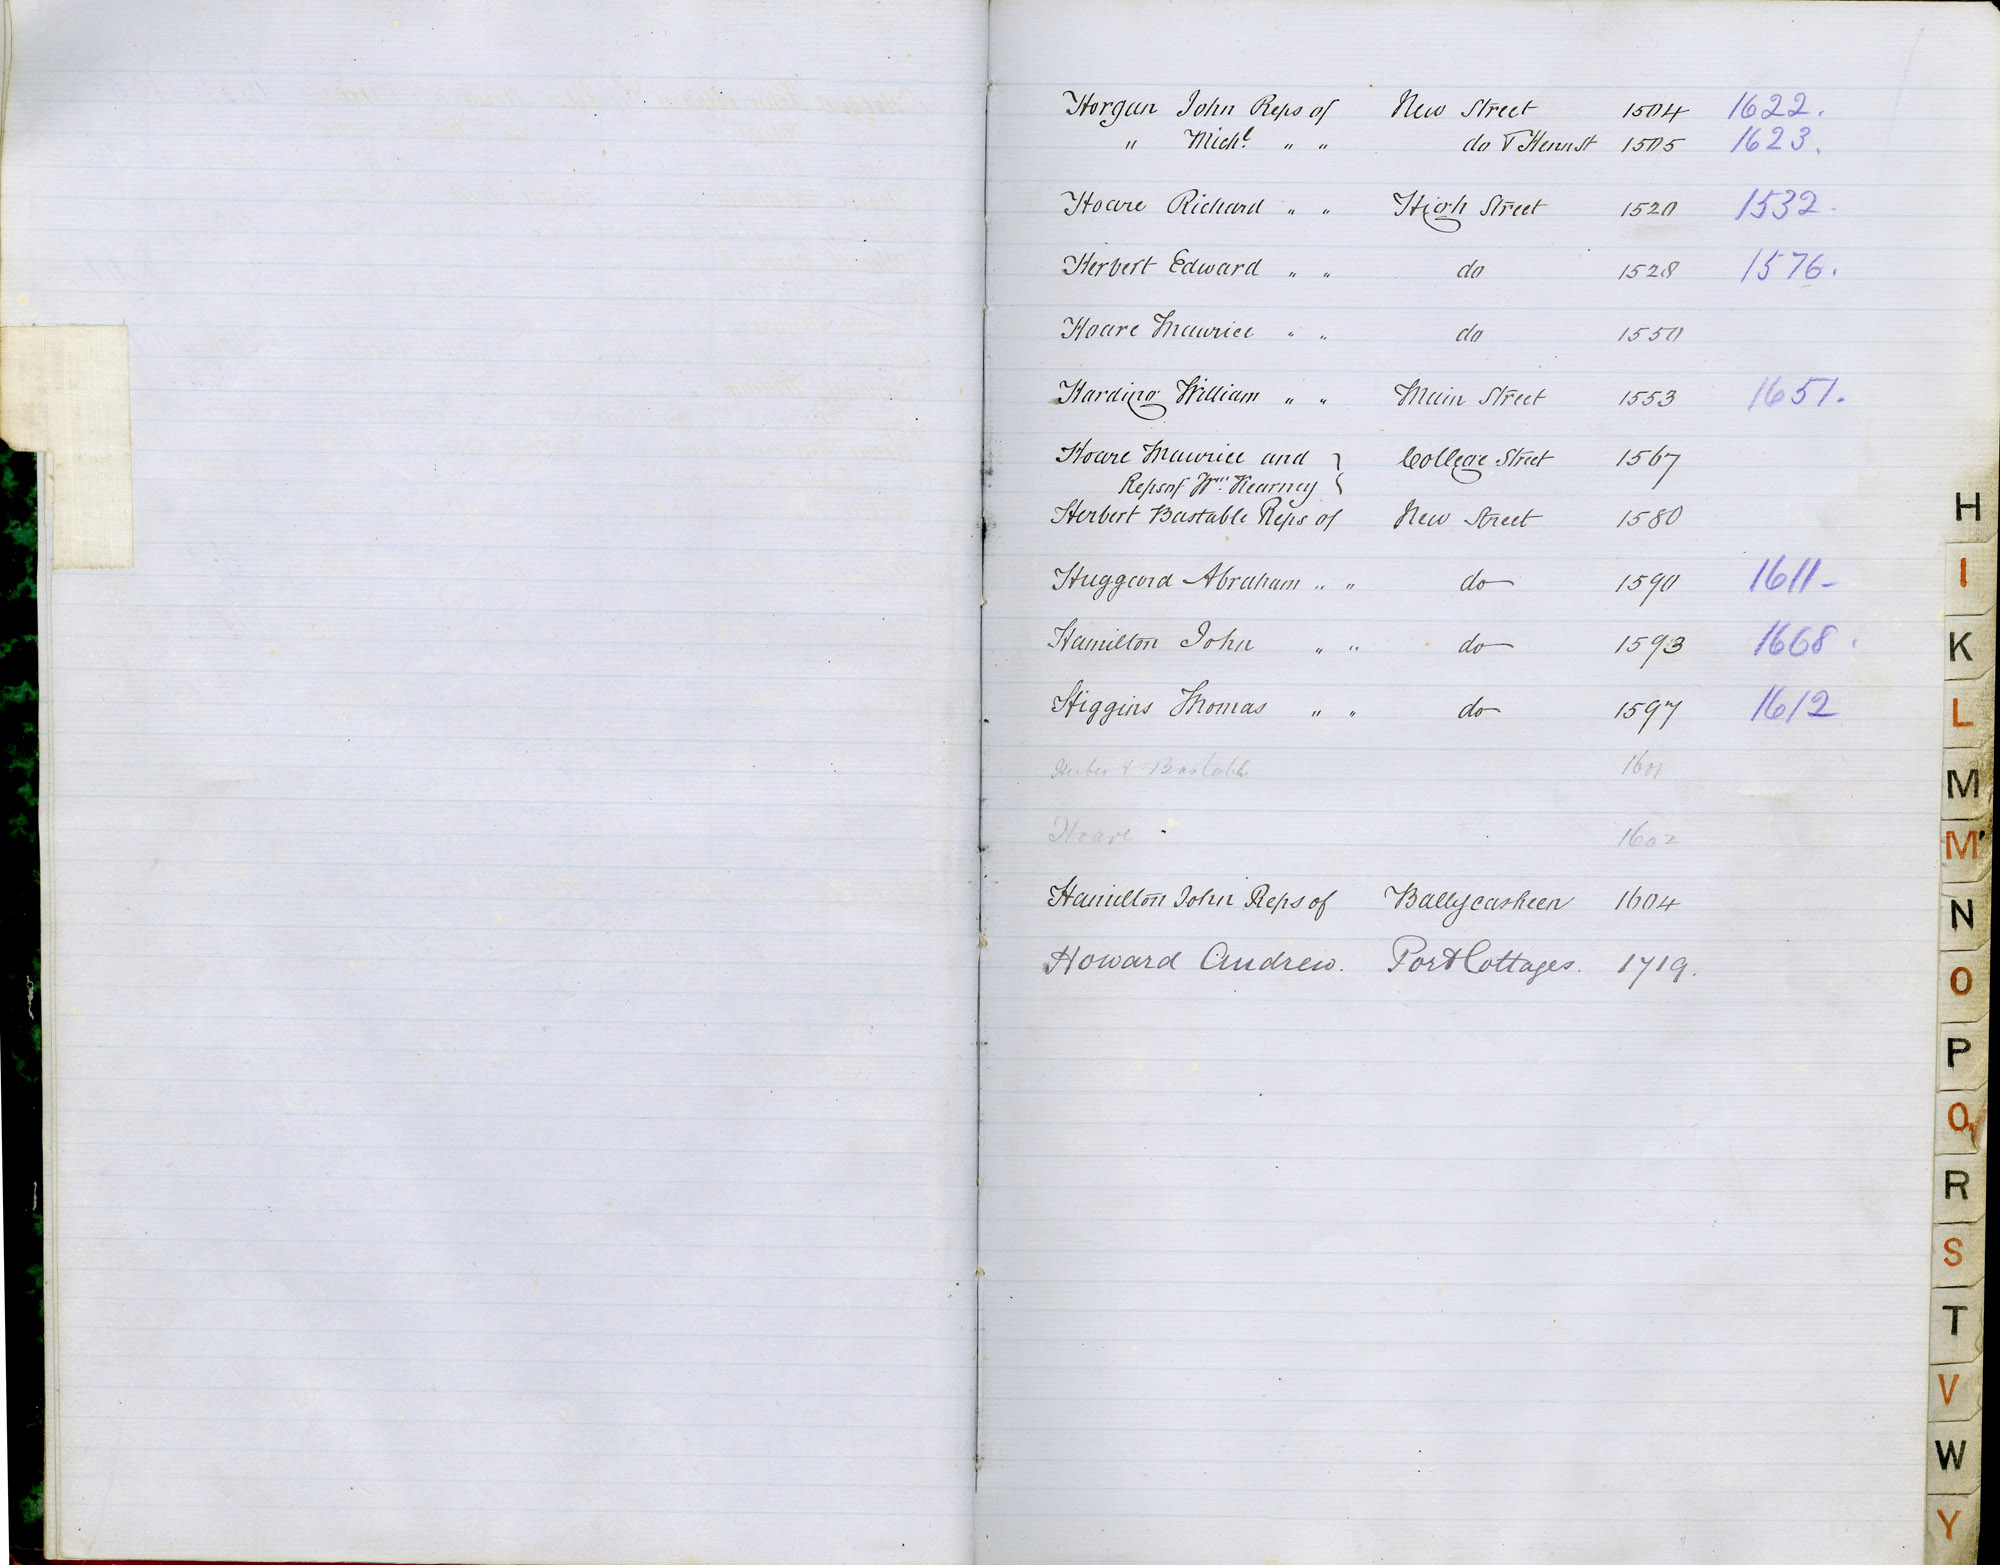 Horgan John Reps of New Street 1504 1622.
" Michl " " do & Henn St 1505 1623.
Hoare Richard " " High Street 1520 1532.
Herbert Edward " " do 1528 1576.
Hoare Maurice " " do 1550
Harding William " " Main Street 1553 1651.
Hoare Maurice and } College Street 1567
Reps of Wm Kearney
Herbert Bastable Reps of New Street 1580
Huggard Abraham " " do 1590 1611-
Hamilton John " " do 1593 1668.
Higgins Thomas " " do 1597 1612
Herbert Bastable 1601
Hoare 1602
Hamilton John Reps of Ballycasheen 1604
Howard Andrew. Port Cottages. 1719.
H
I
K
L
M
M'
N
O
P
Q
R
S
T
V
W
Y